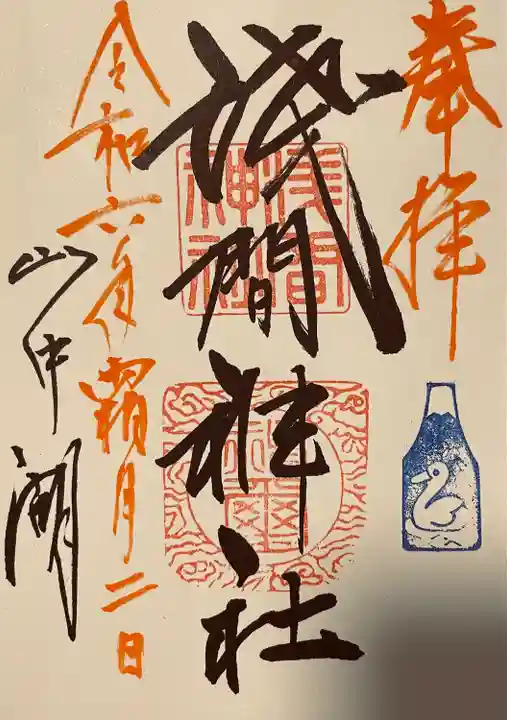 奉拝
浅間神社
浅間
神社
令和六年霜月二日
山中湖